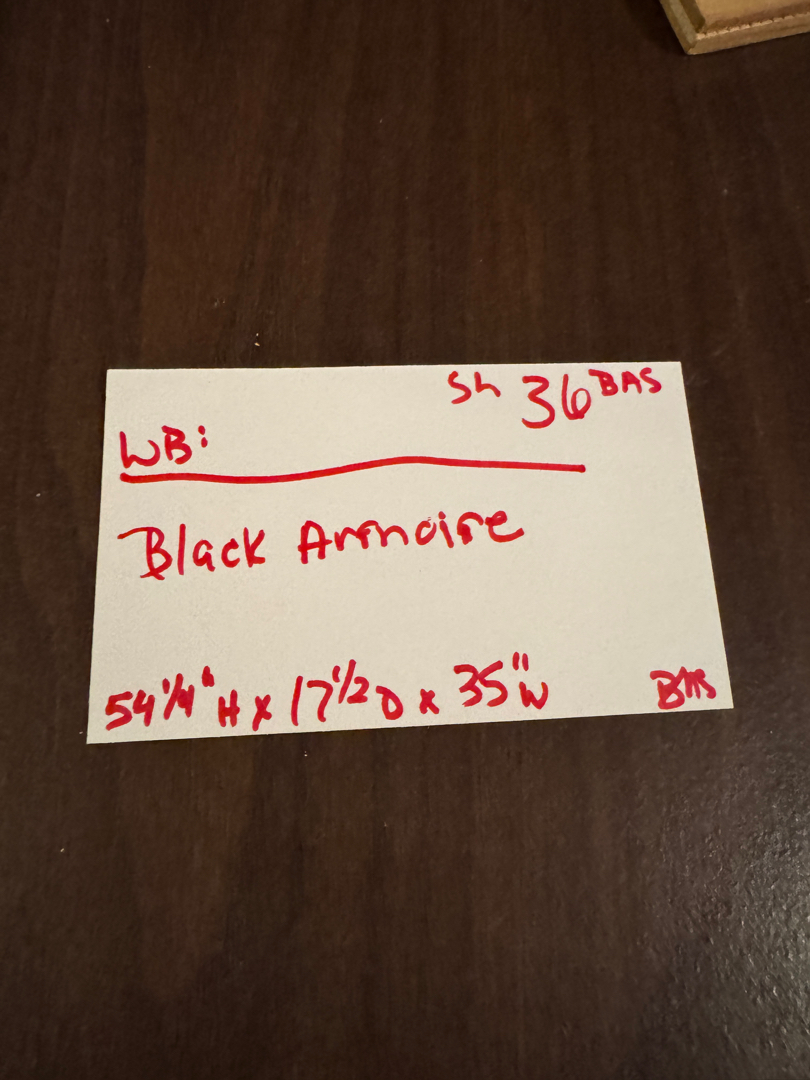 Sh 36 BAS
WB:
Black Armoire
54 1/4" H x 17 1/2 D x 35" W BAS